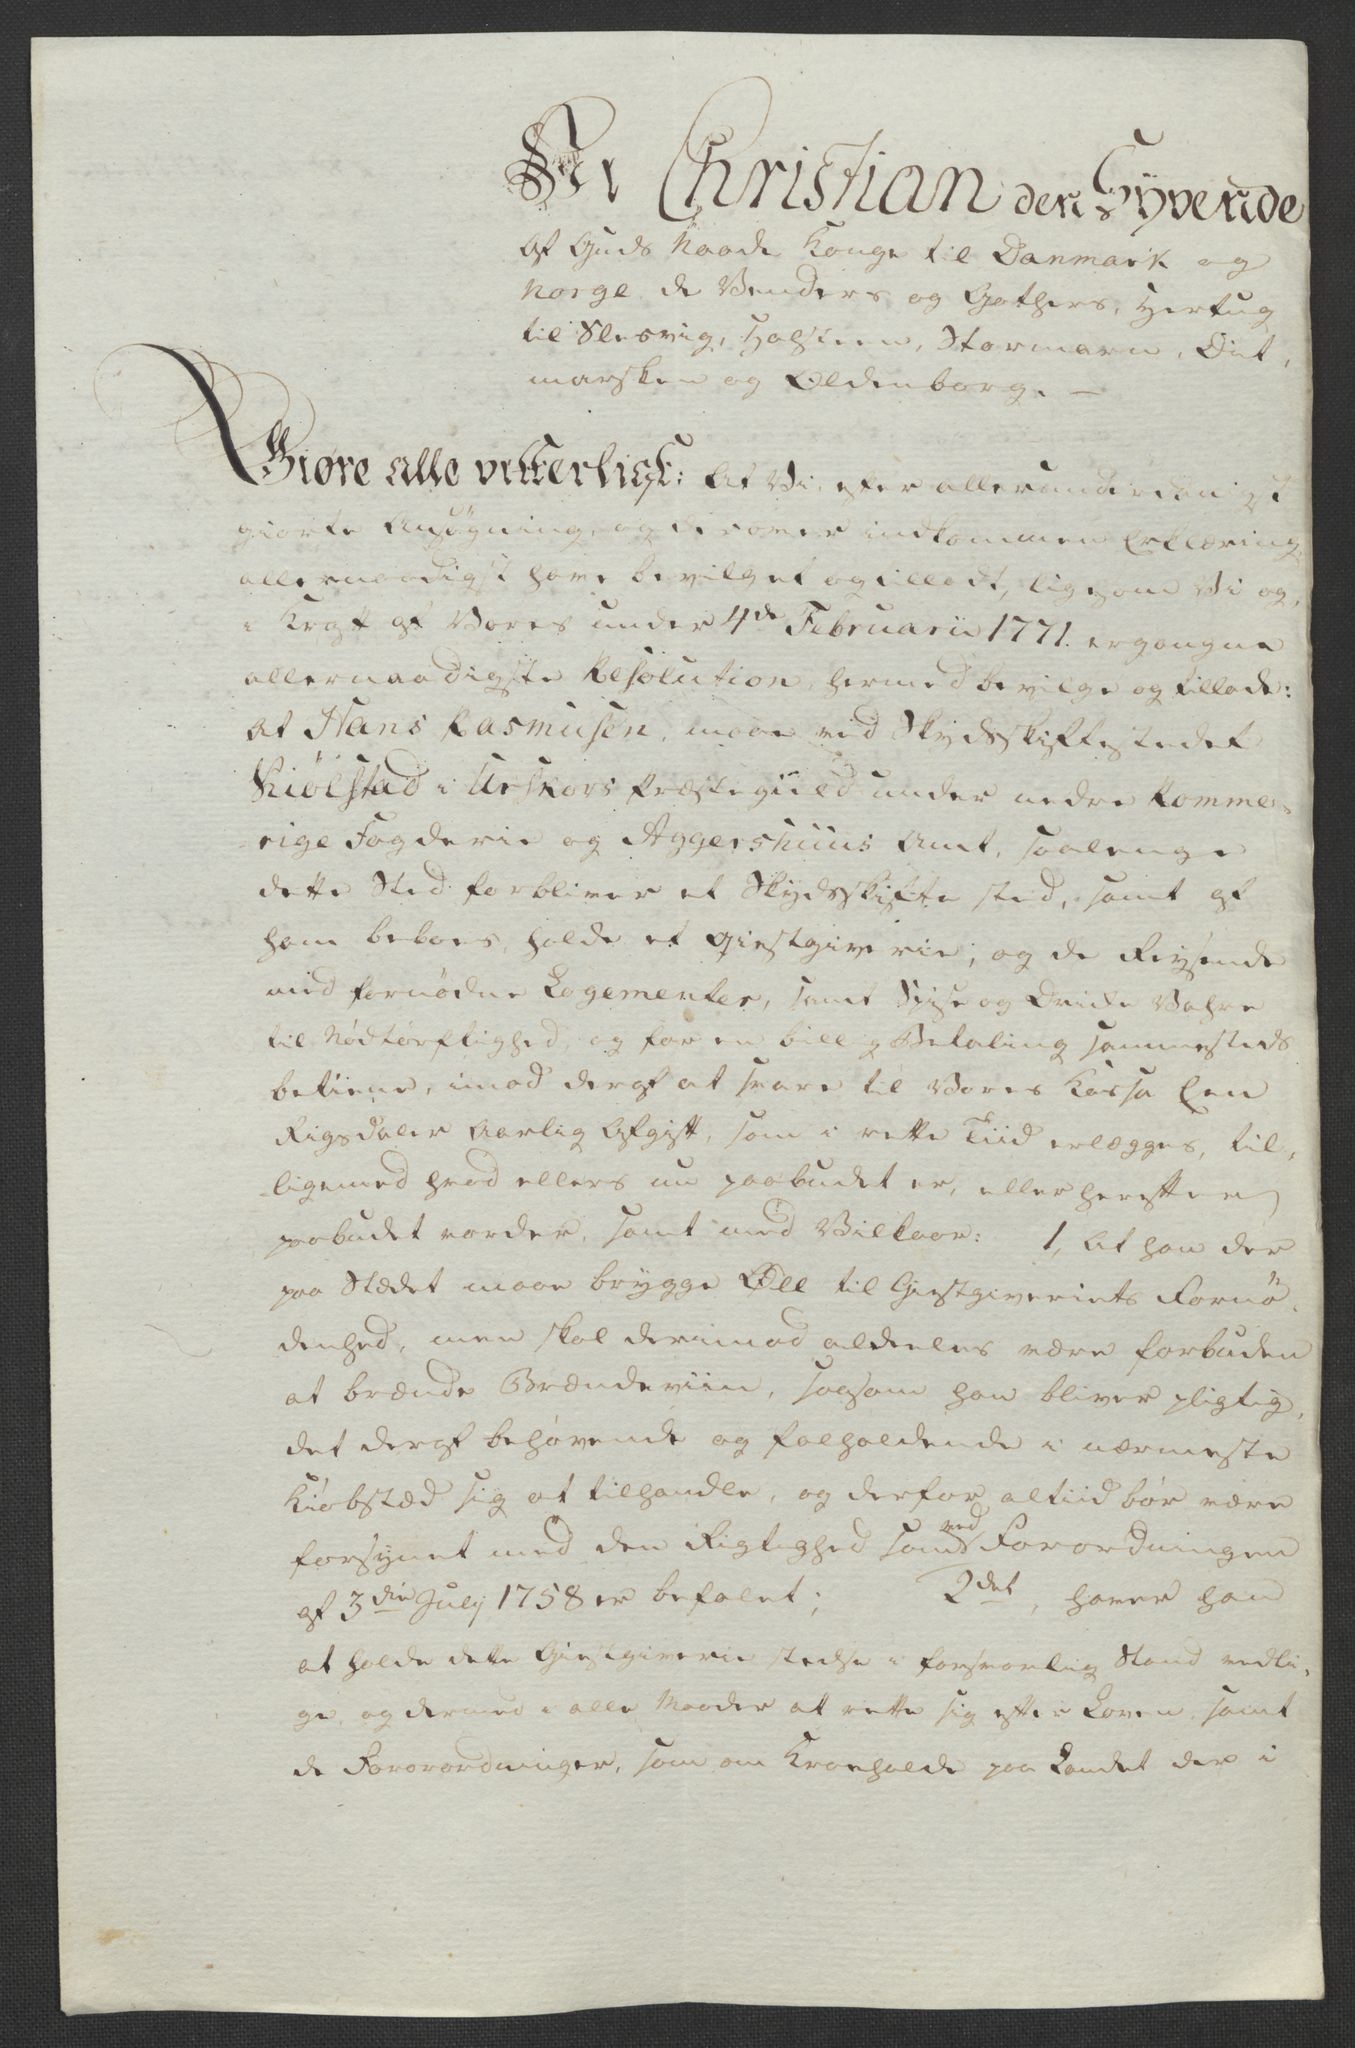 Vi Christian den Syvende
Af Guds Naade Konge til Danmark og
Norge de Venders og Gothers, Hertug
til Slesvig, Holsteen, Stormarn, Dit,
marsken og Oldenborg. —
Giøre alle vitterligt: At Vi, efter allerunderdanigst
giorte Ansøgning, og derover indkommen Erklæring,
allernaadigst have bevilget og tilladt, ligesom Vi og,
i Kraft af Vores under 4de Februarii 1771. ergangne
allernaadigste Resolution, hermed bevilge og tillade:
at Hans Rasmusen, maae ved Skydsskiftestedet
Kiølstad i Urskovs Præstegield under nedre Romme,
rige Fogderie og Aggershuus Amt, saalenge
dette Sted forbliver et Skydsskifte sted, samt af
ham beboes, holde et Giestgiverie; og de Reysende
med fornødne Logementer, samt Spise og Dricke Vahre
til Nødtørftighed, og for en billig Betaling sammesteds
betiene, imod deraf at svare til Vores Kassa Een
Rigsdaler Aarlig Afgift, som i rette Tiid erlægges, til,
ligemed hvad ellers nu paabudet er, eller herefter
paabudet vorder, samt med Vilkaar: 1, At han der
paa Stædet maae brygge Øll til Giestgiveriets Fornø,
denhed, men skal derimod aldeeles være forbuden
at brænde Brændeviin, saasom han bliver pligtig,
det deraf behøvende og falholdende i nærmeste
Kiøbstæd sig at tilhandle, og derfor altiid bør være
forsynet med den Rigtighed som ved Forordningen
af 3die July 1758 er befalet; 2det, haver han
at holde dette Giestgiverie stedse i forsvarlig Stand vedli,
ge, og dermed i alle Maader at rette sig efter Loven, samt
de Forordninger, som om Kroehold paa Landet der i